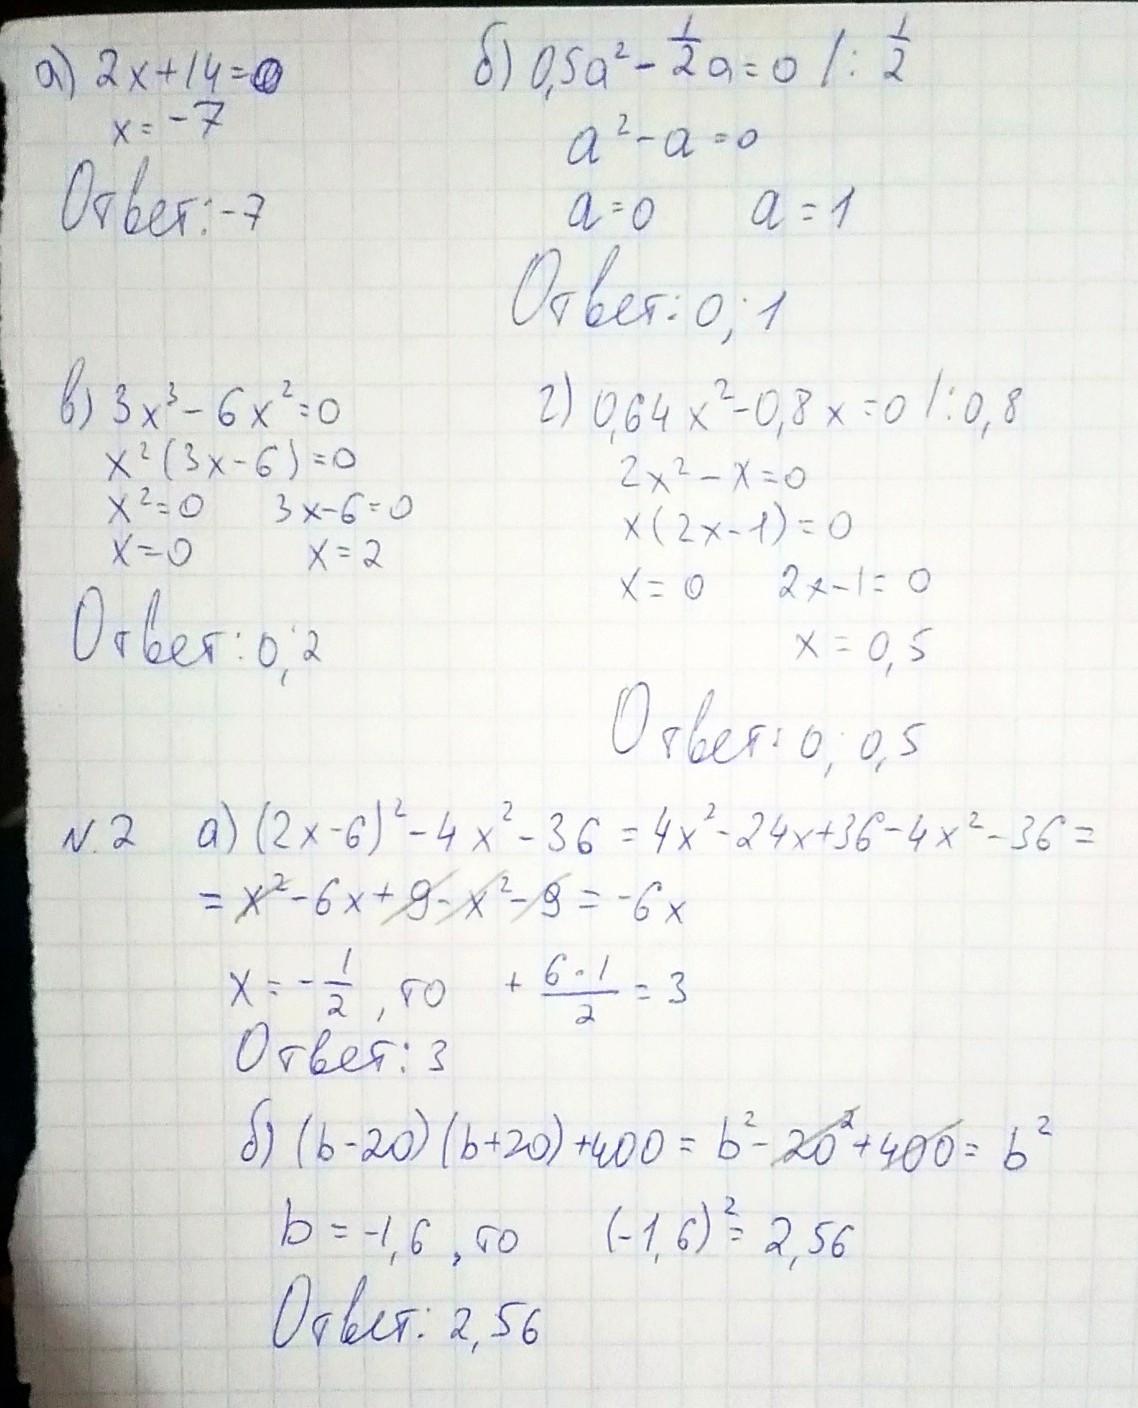 а) 2x+14=0
x=-7
Ответ: -7
б) 0,5a²-1/2a=0 /: 1/2
a²-a=0
a=0 a=1
Ответ: 0; 1
в) 3x³-6x²=0
x²(3x-6)=0
x²=0 3x-6=0
x=0 x=2
Ответ: 0; 2
г) 0,64x²-0,8x=0 /:0,8
2x²-x=0
x(2x-1)=0
x=0 2x-1=0
x=0,5
Ответ: 0; 0,5
N.2 а) (2x-6)²-4x²-36=4x²-24x+36-4x²-36=
=x²-6x+9-x²-9=-6x
x=-1/2, то +6·1/2=3
Ответ: 3
б) (b-20)(b+20)+400=b²-20²+400=b²
b=-1,6, то (-1,6)²=2,56
Ответ: 2,56